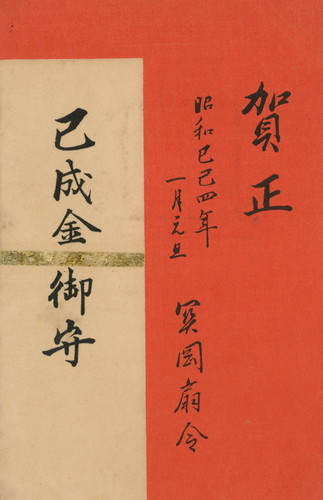 賀正
昭和己巳四年
一月元旦
岡扇令
巳成金御守